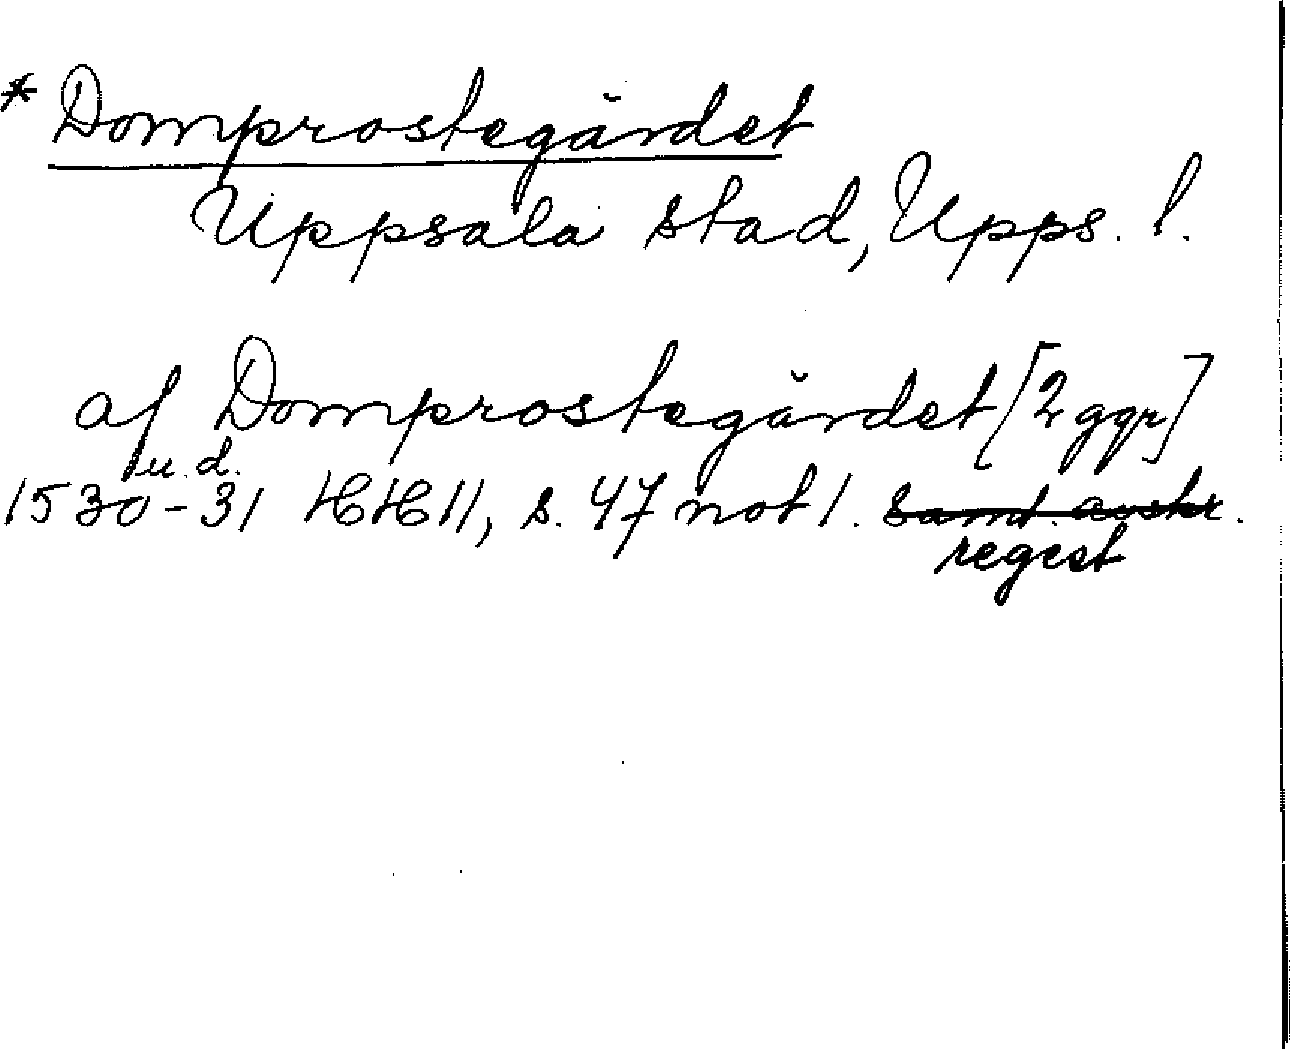 * Domprostegärdet
Uppsala stad, Upps. l.
af Domprostegärdet [2 ggr]
u. d.
1530-31 HH 11, s. 47 not 1. samt. avskr.
regest